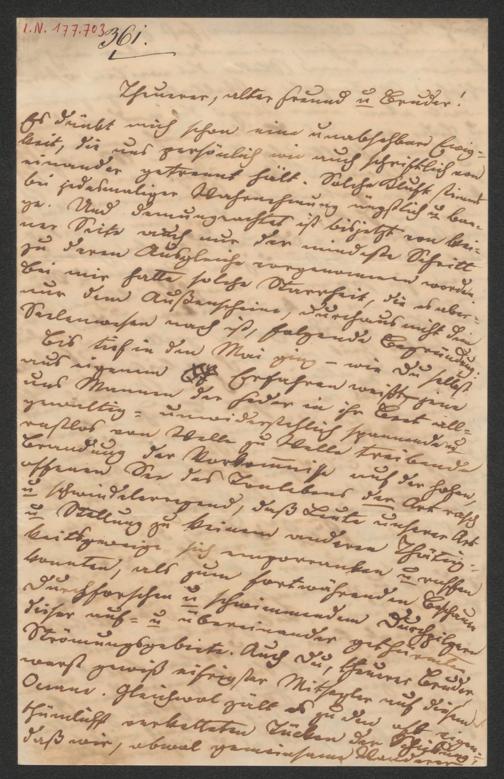 I.N. 177.703
361.
Theuerer, alter Freund u Bruder!
Es dünkt mich schon eine unabsehbare Ewig-
keit, die uns persönlich wie auch schriftlich von
einander getrennt hält. Solche Kluft stimmt
bei jedesmaliger Wahrnehmung ängstlich u ban-
ge. Und demungeachtet ist bisjetzt von kei-
ner Seite auch nur der mindeste Schritt
zu deren Ausgleiche vorgenommen worden.
Bei mir hatte solche Starrheit, die es aber
nur dem Außenscheine, durchaus nicht dem
Seelenwesen nach ist, folgende Begründung:
Bis tief in den Mai ging – wie Du selbst
aus eigenem Erfahren weißt – eine
uns Mannen der Feder in ihr Bett all-
gewaltig - unwiderstehlich spannende u
rastlos von Welle zu Welle treibende
Brandung der Vorkommnisse auf der hohen,
offenen See des Tonlebens der Art rasch
u schwindelerregend, daß Leute unserer Art
u Stellung zu keinem anderen Thätig-
keitszweige sich emporranken u raffen
konnten, als zum fortwährenden Beschauen
Durchforschen u schwimmendem Durchpilgern
dieser auf- u übereinander gethürmten
Strömungsgebiete. Auch Du, theurer Bruder
warst gewiß eifrigster Mitsegler auf diesem
Ocean. Gleichwol zält es zu den oft eigen-
thümlichst verketteten Tücken der
daß wir, obwol gemeinsame Wanderer